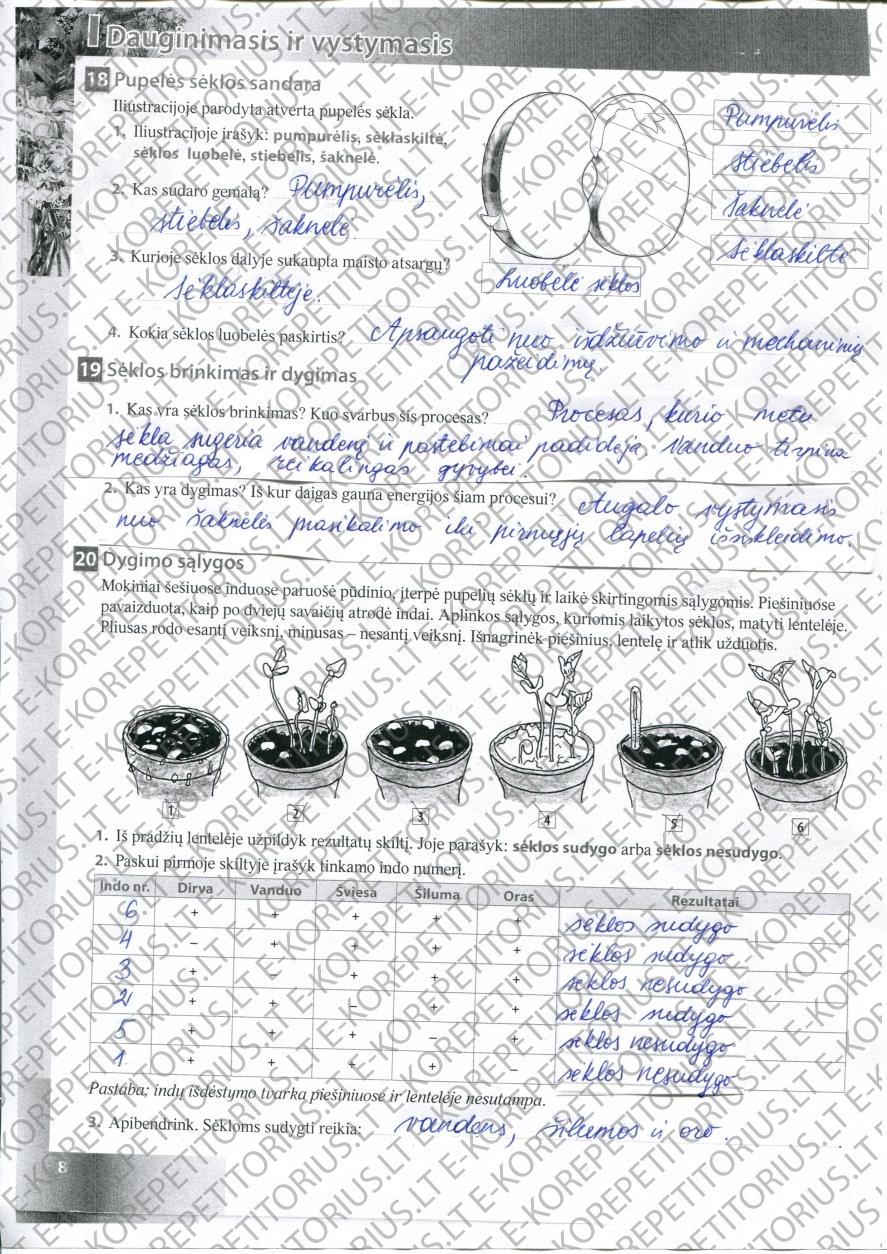 I Dauginimasis ir vystymasis
18 Pupelės sėklos sandara
Iliustracijoje parodyta atverta pupelės sėkla.
1. Iliustracijoje įrašyk: pumpurėlis, sėklaskiltė,
sėklos luobelė, stiebelis, šaknelė.
Pumpurėlis
stiebelis
šaknelė
sėklaskiltė
luobelė sėklos
2. Kas sudaro gemalą? Pumpurėlis,
stiebelis, šaknelė
3. Kurioje sėklos dalyje sukaupta maisto atsargų?
sėklaskiltėje.
4. Kokia sėklos luobelės paskirtis? Apsaugoti nuo išdžiūvimo ir mechaninių
pažeidimų.
19 Sėklos brinkimas ir dygimas
1. Kas yra sėklos brinkimas? Kuo svarbus šis procesas? Procesas, kurio metu
sėkla sugeria vandenį ir pastebimai padidėja. Vanduo tirpina
medžiagas, reikalingas gyvybei.
2. Kas yra dygimas? Iš kur daigas gauna energijos šiam procesui? Augalo vystymasis
nuo šaknelės prasikalimo iki pirmųjų lapelių išsiskleidimo.
20 Dygimo sąlygos
Mokiniai šešiuose induose paruošė pūdinio, įterpė pupelių sėklų ir laikė skirtingomis sąlygomis. Piešiniuose
pavaizduota, kaip po dviejų savaičių atrodė indai. Aplinkos sąlygos, kuriomis laikytos sėklos, matyti lentelėje.
Pliusas rodo esantį veiksnį, minusas – nesantį veiksnį. Išnagrinėk piešinius, lentelę ir atlik užduotis.
1 2 3 4 5 6
1. Iš pradžių lentelėje užpildyk rezultatų skiltį. Joje parašyk: sėklos sudygo arba sėklos nesudygo.
2. Paskui pirmoje skiltyje įrašyk tinkamo indo numerį.
Indo nr. Dirva Vanduo Šviesa Šiluma Oras Rezultatai
6 + + + + + sėklos sudygo
4 – + + + + sėklos sudygo
3 + – + + + sėklos nesudygo
2 + + – + + sėklos sudygo
5 + + + – + sėklos nesudygo
1 + + + + – sėklos nesudygo
Pastaba: indų išdėstymo tvarka piešiniuose ir lentelėje nesutampa.
3. Apibendrink. Sėkloms sudygti reikia: vandens, šilumos ir oro.
8
E-KOREPETITORIUS.LT